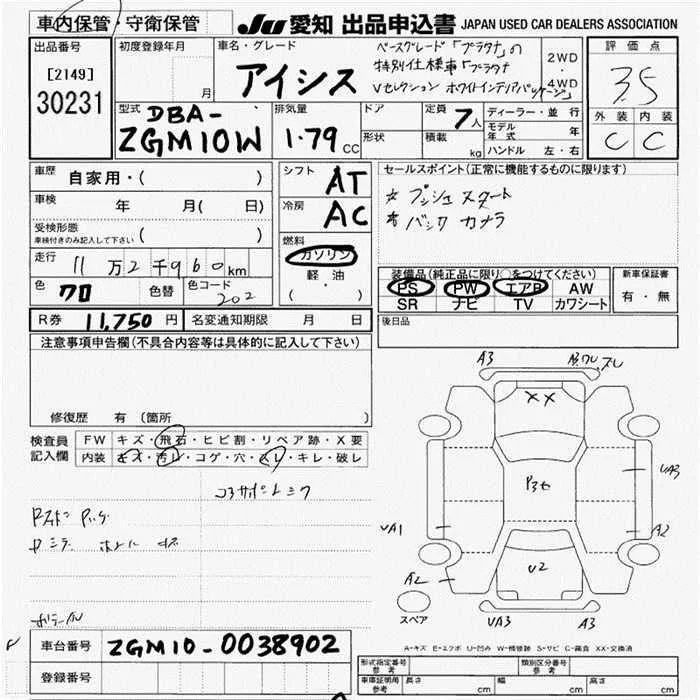 車内保管・守衛保管
JU 愛知 出品申込書 JAPAN USED CAR DEALERS ASSOCIATION
出品番号
[2149]
30231
初度登録年月
月
車名・グレード
アイシス
ベースグレード「プラタナ」の
特別仕様車「プラタナ
Vセレクション ホワイトインテリアパッケージ」
2WD
・
4WD
評価点
3.5
外装 内装
C C
型式
DBA-
ZGM10W
排気量
1.79 CC
ドア
形状
定員
7人
積載
kg
ディーラー・並行
モデル年式 年
ハンドル 左・右
車歴
自家用・( )
車検 年 月( 日)
受検形態
車検付きのみ記入して下さい ( )
走行 11万2千960km
色 クロ 色替 色コード 202
シフト AT
冷房 AC
燃料
ガソリン
軽油
( ・ )
セールスポイント(正常に機能するものに限ります)
* プッシュスタート
* バック カメラ
装備品(純正品に限り○をつけてください)
PS PW エアB AW
SR ナビ TV カワシート
新車保証書
有・無
後日品
R券 11,750円 名変通知期限 月 日
注意事項申告欄(不具合内容等は具体的に記入して下さい)
修復歴 有(箇所 )
検査員
記入欄
FW キズ・飛石・ヒビ割・リペア跡・X要
内装 キズ・汚レ・コゲ・穴・スレ・キレ・破レ
A3
XX
UA3
UA1
A2
A2
U2
スペア
UA3
A3
A-キズ E-エクボ U-凹み W-補修跡 S-サビ C-腐食 XX-交換済
車台番号 ZGM10-0038902
登録番号
形式指定番号
参考
類別区分番号
参考
車庫証明用
参考
長さ cm 幅 cm 高さ cm